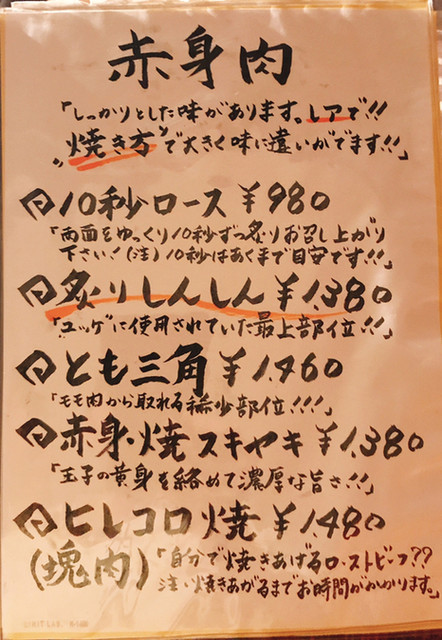 赤身肉
「しっかりとした味があります。レアで!!
"焼き方"で大きく味に違いがでます!!」
10秒ロース ¥980
「両面をゆっくり10秒ずつ炙りお召し上がり
下さい!(注)10秒はあくまで目安です!!」
炙りしんしん ¥1.380
「ユッケに使用されていた最上部位!!」
とも三角 ¥1.460
「モモ肉から取れる稀少部位!!!」
赤身・焼スキヤキ ¥1.380
「玉子の黄身を絡めて濃厚な旨さ!!」
ヒレコロ焼 ¥1480
(塊肉)「自分で焼きあげるロ-ストビーフ??
注い焼きあがるまでお時間がかかります。」